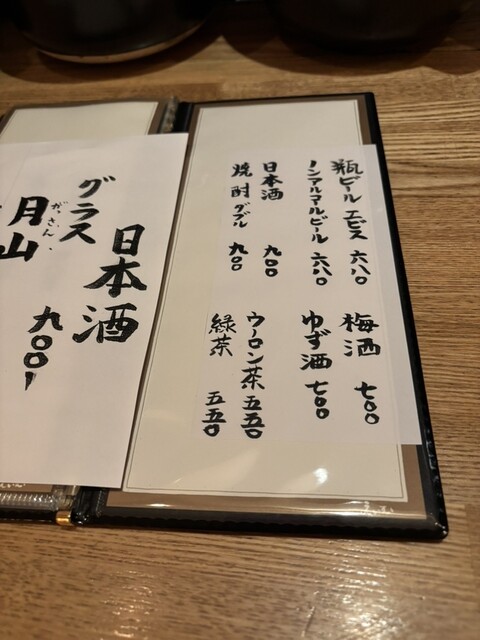 瓶ビール ヱビス 六八〇
ノンアルマールビール 六八〇
日本酒 九〇〇
焼酎 ダブル 九〇〇
梅酒 七〇〇
ゆず酒 七〇〇
ウーロン茶 五五〇
緑茶 五五〇
日本酒
グラス 九〇〇
月山
がっさん